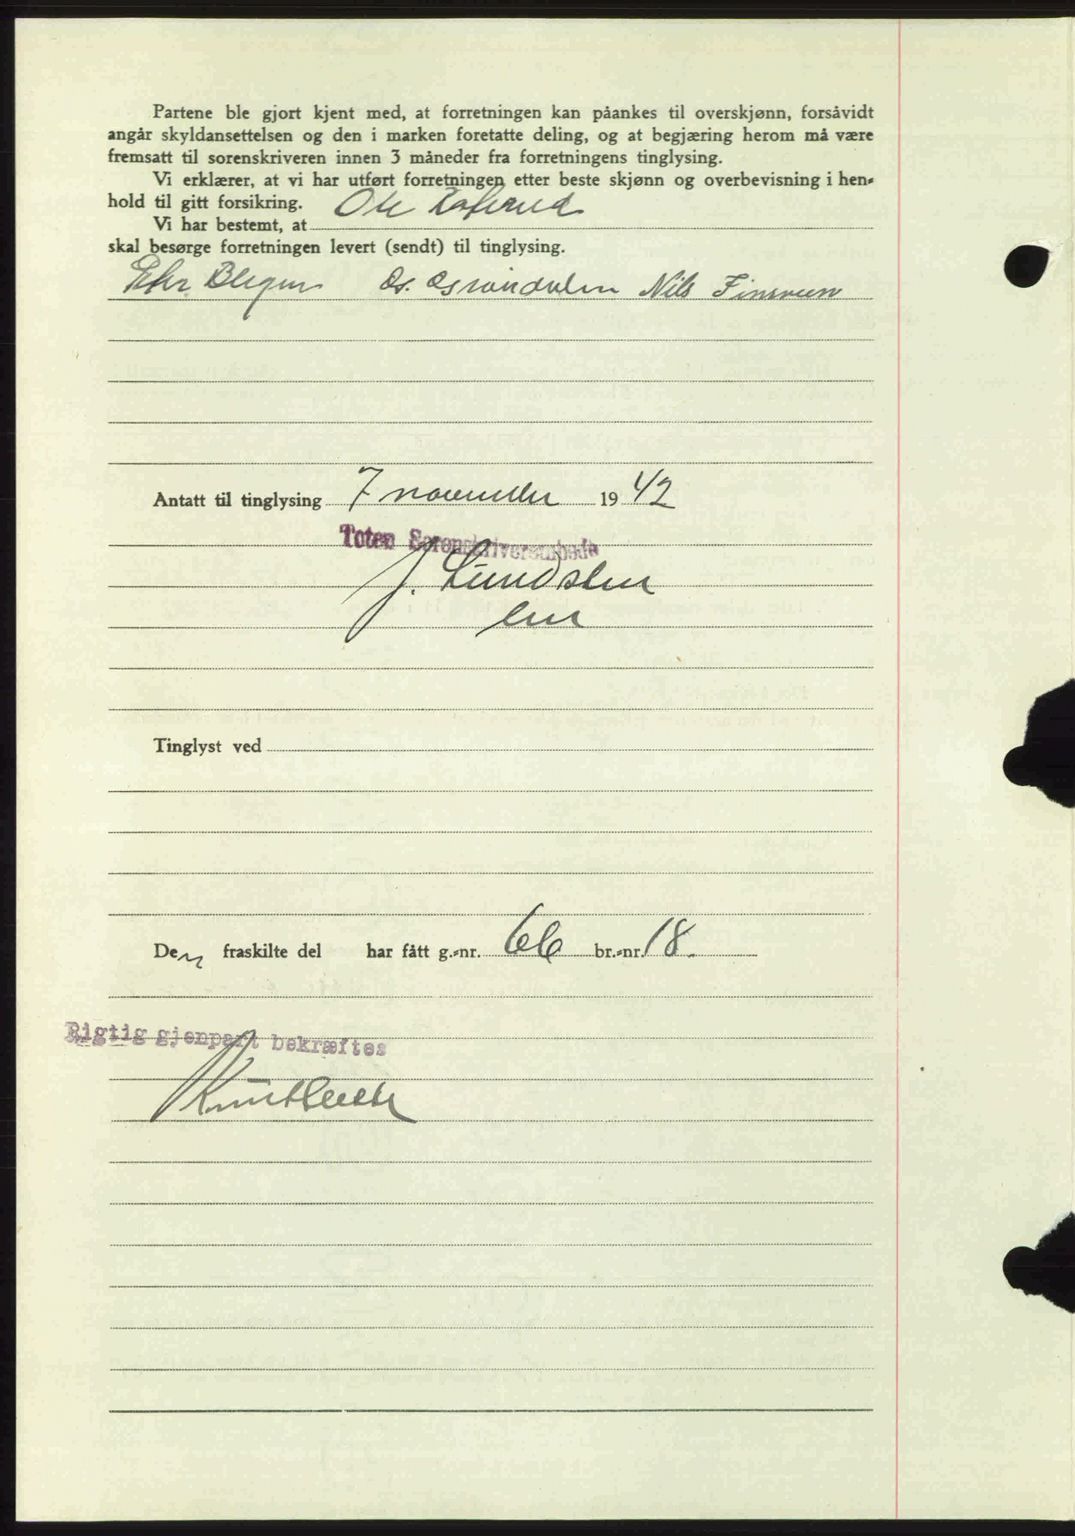 Partene ble gjort kjent med, at forretningen kan påankes til overskjønn, forsåvidt
angår skyldansettelsen og den i marken foretatte deling, og at begjæring herom må være
fremsatt til sorenskriveren innen 3 måneder fra forretningens tinglysing.
Vi erklærer, at vi har utført forretningen etter beste skjønn og overbevisning i hen-
hold til gitt forsikring.
Vi har bestemt, at Ole
skal besørge forretningen levert (sendt) til tinglysing.
Nils Finsveen
Antatt til tinglysing 7 november 1942
Toten Sorenskriverembede
J. Lundsten
Tinglyst ved
Den fraskilte del har fått g.-nr. 66 br.-nr. 18.
Rigtig gjenpart bekræftes